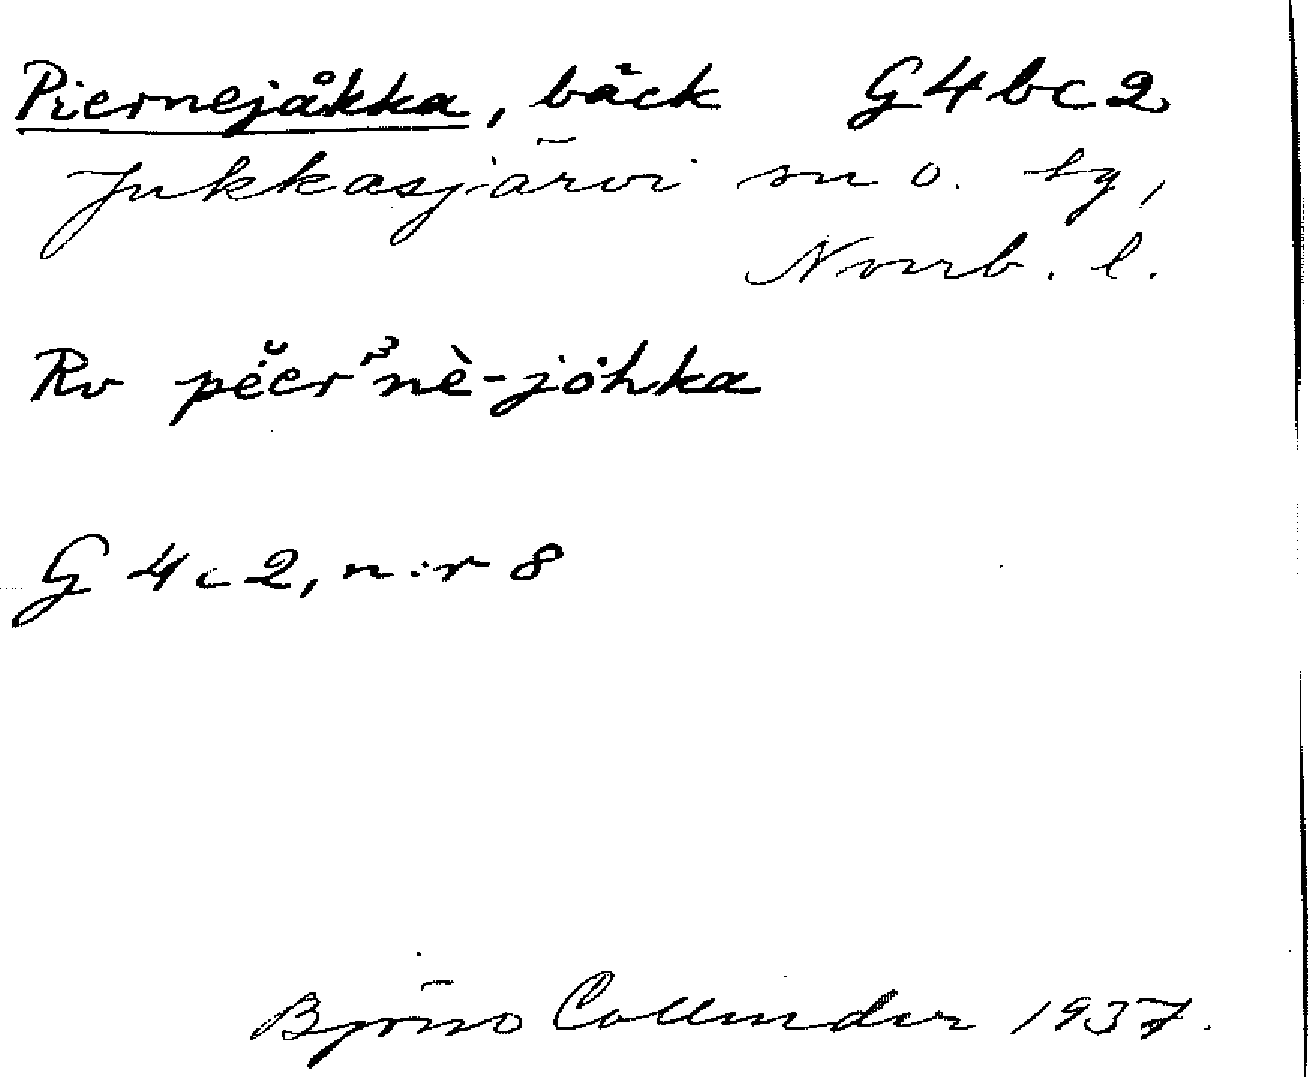 Piernejåkka, bäck G4bc2
Jukkasjärvi sn o. tg,
Norrb. l.
Rv
G 4c2, n:r 8
Björn Collinder 1937.